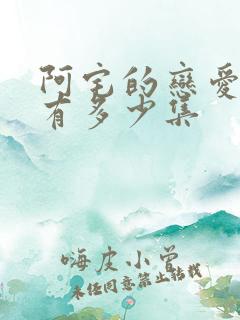 阿宅的戀愛
有多少集
嗨皮小曾
未经同意禁止转载